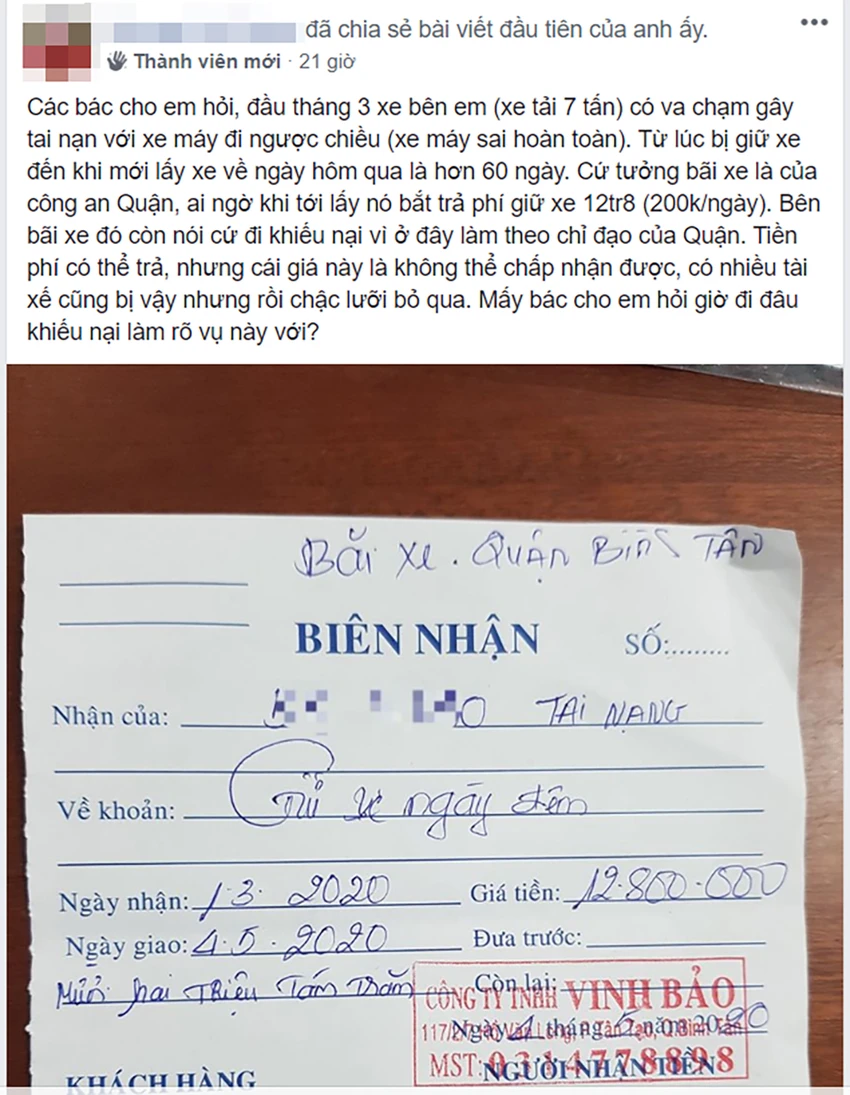 đã chia sẻ bài viết đầu tiên của anh ấy.
Thành viên mới · 21 giờ
Các bác cho em hỏi, đầu tháng 3 xe bên em (xe tải 7 tấn) có va chạm gây
tai nạn với xe máy đi ngược chiều (xe máy sai hoàn toàn). Từ lúc bị giữ xe
đến khi mới lấy xe về ngày hôm qua là hơn 60 ngày. Cứ tưởng bãi xe là của
công an Quận, ai ngờ khi tới lấy nó bắt trả phí giữ xe 12tr8 (200k/ngày). Bên
bãi xe đó còn nói cứ đi khiếu nại vì ở đây làm theo chỉ đạo của Quận. Tiền
phí có thể trả, nhưng cái giá này là không thể chấp nhận được, có nhiều tài
xế cũng bị vậy nhưng rồi chậc lưỡi bỏ qua. Mấy bác cho em hỏi giờ đi đâu
khiếu nại làm rõ vụ này với?
Bãi xe. QUẬN BÌNH TÂN
BIÊN NHẬN SỐ:........
Nhận của: TAI NẠNG
Về khoản: xe ngày đêm
Ngày nhận: 1.3.2020 Giá tiền: 12.800.000
Ngày giao: 4.5.2020 Đưa trước:
Mười hai Triệu Tám Trăm Còn lại:
CÔNG TY TNHH VINH BẢO
Ngày 4 tháng 5 năm 2020
MST: 0314778898
KHÁCH HÀNG NGƯỜI NHẬN TIỀN